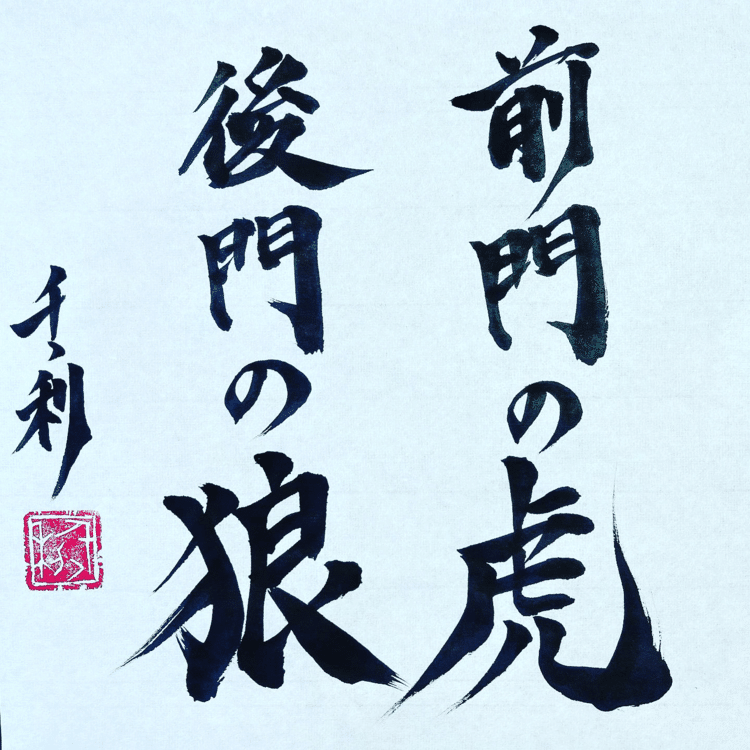 前門の虎
後門の狼
千利